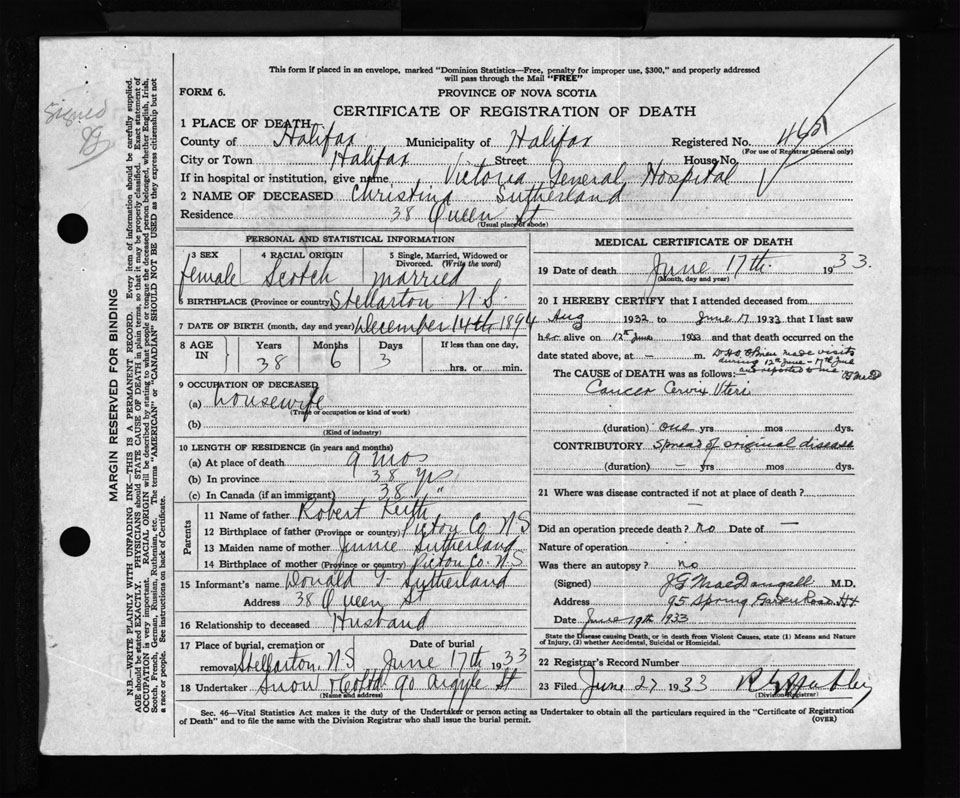 This form if placed in an envelope, marked "Dominion Statistics—Free, penalty for improper use, $300," and properly addressed
will pass through the Mail "FREE"
FORM 6.
PROVINCE OF NOVA SCOTIA
CERTIFICATE OF REGISTRATION OF DEATH
Signed
MARGIN RESERVED FOR BINDING
N.B.—WRITE PLAINLY WITH UNFADING INK—THIS IS A PERMANENT RECORD. Every item of information should be carefully supplied.
AGE should be stated EXACTLY. PHYSICIANS should STATE CAUSE OF DEATH in plain terms, so that it may be properly classified. Exact statement of
OCCUPATION is very important. RACIAL ORIGIN will be described by stating to what people or tongue the deceased person belonged, whether English, Irish,
Scotch, French, German, Russian, Ruthenian, etc. The terms "AMERICAN" or "CANADIAN" SHOULD NOT BE USED as they express citizenship but not
a race or people. See instructions on back of Certificate.
1 PLACE OF DEATH
County of Halifax Municipality of Halifax Registered No.
(For use of Registrar General only)
City or Town Halifax Street House No.
If in hospital or institution, give name Victoria General Hospital
2 NAME OF DECEASED Christina Sutherland
Residence 38 Queen St
(Usual place of abode)
PERSONAL AND STATISTICAL INFORMATION
3 SEX 4 RACIAL ORIGIN 5 Single, Married, Widowed or
Divorced. (Write the word)
female Scotch married
6 BIRTHPLACE (Province or country) Stellarton N.S.
7 DATE OF BIRTH (month, day and year) December 14th 1894
8 AGE IN Years Months Days If less than one day,
38 6 3 hrs. or min.
9 OCCUPATION OF DECEASED
(a) housewife
(Trade or occupation or kind of work)
(b)
(Kind of industry)
10 LENGTH OF RESIDENCE (in years and months)
(a) At place of death 9 mos
(b) In province 38 yrs
(c) In Canada (if an immigrant) 38 "
Parents
11 Name of father Robert Keith
12 Birthplace of father (Province or country) Pictou Co. N S
13 Maiden name of mother Jennie Sutherland
14 Birthplace of mother (Province or country) Pictou Co. N.S
15 Informant's name Donald Sutherland
Address 38 Queen St
16 Relationship to deceased Husband
17 Place of burial, cremation or Date of burial
removal Stellarton N S June 17th 1933
18 Undertaker Snow & Co Ltd 90 Argyle St
(Name and address)
MEDICAL CERTIFICATE OF DEATH
19 Date of death June 17th 1933.
(Month, day and year)
20 I HEREBY CERTIFY that I attended deceased from
Aug 1932 to June 17 1933 that I last saw
her alive on 12th June 1933 and that death occurred on the
date stated above, at — m. Dr H O'Brien made visits
during 12th June - 17th June
and reported to me
The CAUSE OF DEATH was as follows:
Cancer Cervix Uteri
(duration) one yrs mos dys.
CONTRIBUTORY spread of original disease
(duration) — yrs mos dys.
21 Where was disease contracted if not at place of death?
Did an operation precede death? no Date of —
Nature of operation
Was there an autopsy? no
(Signed) J G MacDougall M.D.
Address 95 Spring Garden Road Hx
Date June 19th 1933
State the Disease causing Death, or in death from Violent Causes, state (1) Means and Nature
of Injury, (2) whether Accidental, Suicidal or Homicidal.
22 Registrar's Record Number
23 Filed June 27 1933
(Division Registrar)
Sec. 46—Vital Statistics Act makes it the duty of the Undertaker or person acting as Undertaker to obtain all the particulars required in the "Certificate of Registration
of Death" and to file the same with the Division Registrar who shall issue the burial permit.
(OVER)